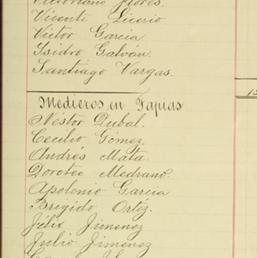 Victoriano Flores.
Vicente Licerio
Victor Garcia
Isidro Galván.
Santiago Vargas.
Medieros en Tapias
Néstor Dubal.
Cecilio Gómez.
Andrés Mata.
Doroteo Medrano.
Apolonio Garcia
Bregido Ortiz.
Félix Jimenez
Julio Jimenez